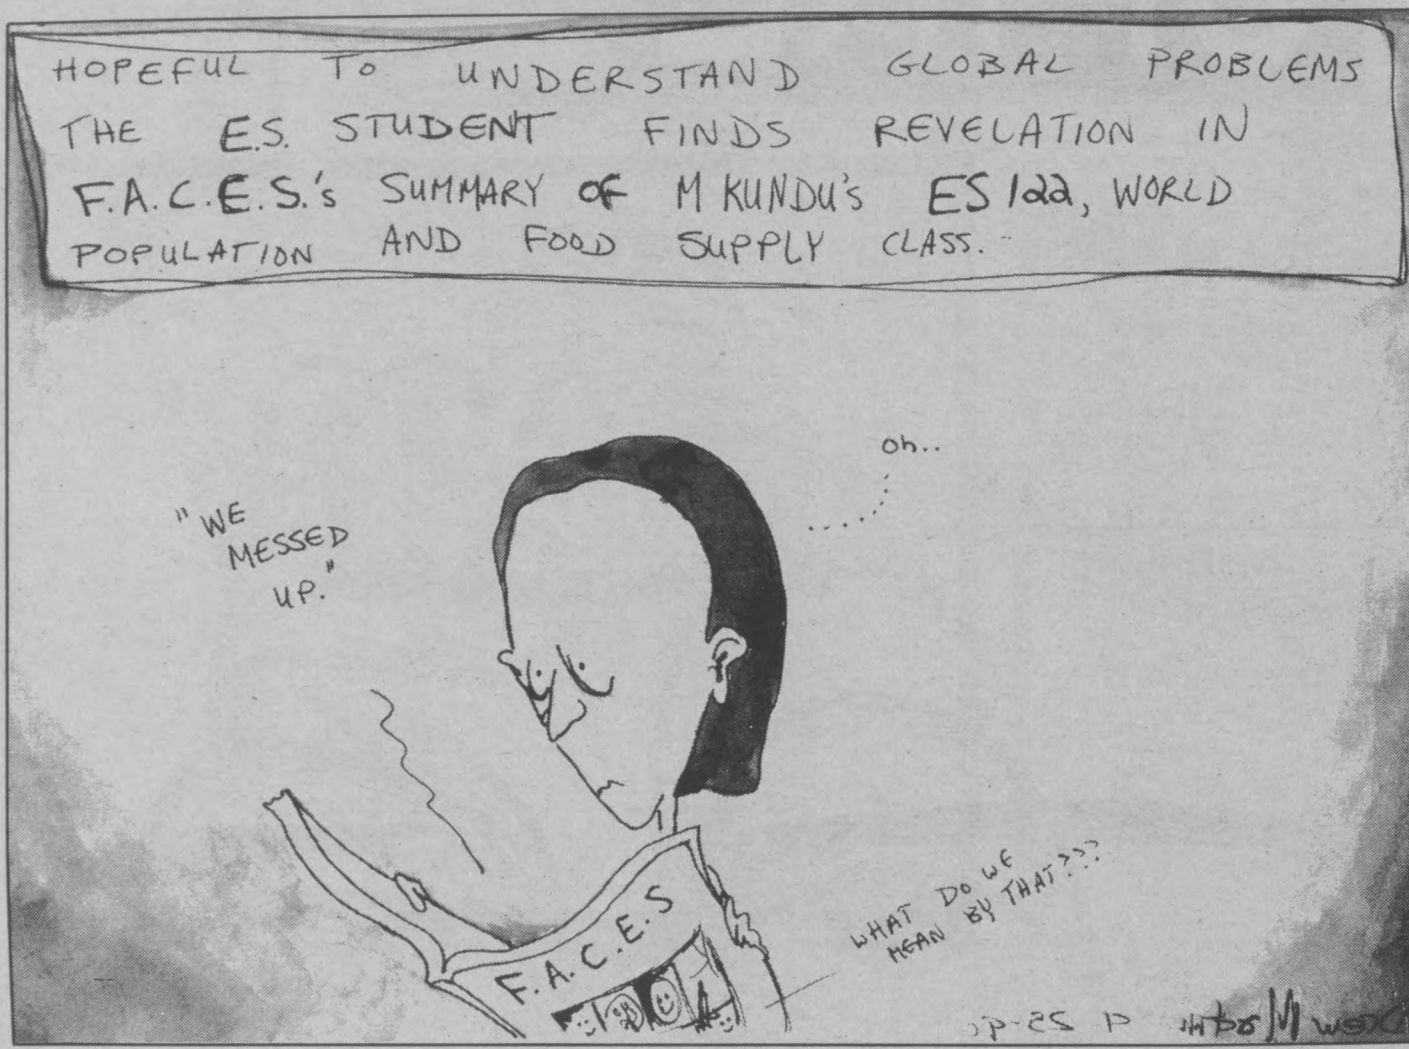 HOPEFUL TO UNDERSTAND GLOBAL PROBLEMS
THE E.S. STUDENT FINDS REVELATION IN
F.A.C.E.S.'s SUMMARY OF M KUNDU'S ES 122, WORLD
POPULATION AND FOOD SUPPLY CLASS.
oh..
"WE
MESSED
UP."
F.A.C.E.S
WHAT DO WE
MEAN BY THAT???
Drew Martin